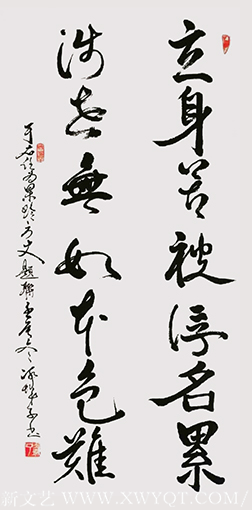 立身苦被浮名累
涉世無如本色難
題聯
新文艺 / WWW.XWYQT.COM/